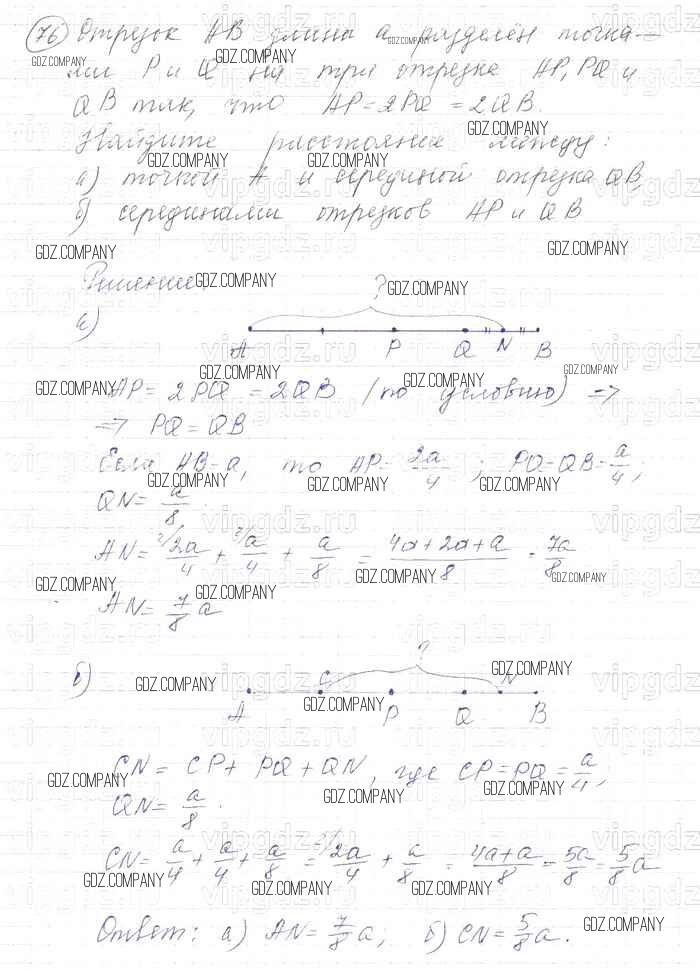 76 Отрезок АВ длина a разделён точка-
ми P и Q на три отрезка AP, PQ и
QB так, что AP = 2PQ = 2QB.
Найдите расстояние между:
а) точкой A и серединой отрезка QB,
б) серединами отрезков AP и QB
Решение
а)
?
A P Q N B
AP = 2PQ = 2QB (по условию) =>
=> PQ = QB
Если AB = a, то AP = 2a/4 ; PQ = QB = a/4 ;
QN = a/8 .
AN = 2/ 2a/4 + 2/ a/4 + a/8 = (4a+2a+a)/8 = 7a/8
AN = 7/8 a
б)
?
C N
A P Q B
CN = CP + PQ + QN, где CP = PQ = a/4 ;
QN = a/8 .
CN = a/4 + a/4 + a/8 = 2/ 2a/4 + a/8 = (4a+a)/8 = 5a/8 = 5/8 a
Ответ: а) AN = 7/8 a; б) CN = 5/8 a.
GDZ.COMPANY
vipgdz.ru